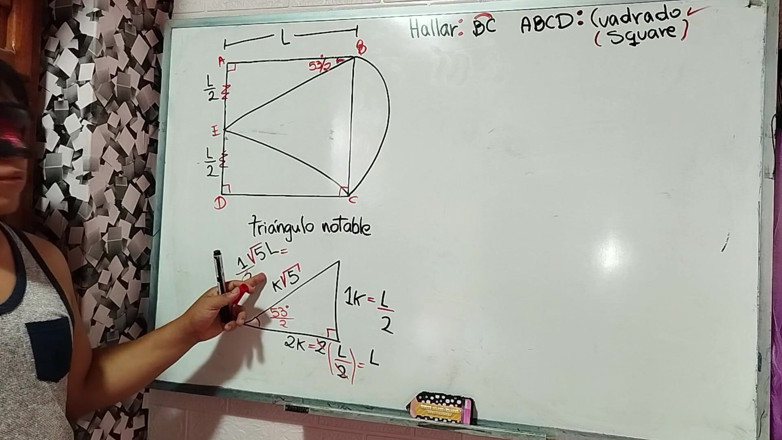 Hallar: BC ABCD: Cuadrado
(Square)
L
A B
53/2
L/2
E
L/2
D C
Triángulo notable
1/2 √5L=
K√5
1K = L/2
53°/2
2K = 2(L/2) = L